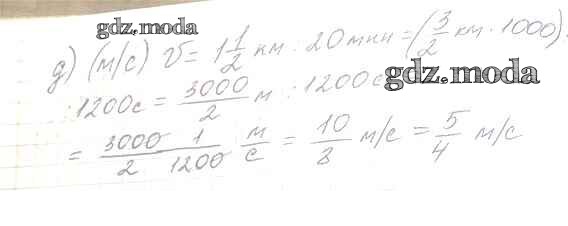 gdz.moda
д) (м/с) v = 1 1/2 км : 20 мин = (3/2 км · 1000) :
: 1200 с = 3000/2 м : 1200 с
gdz.moda
= 3000/2 1/1200 м/с = 10/8 м/с = 5/4 м/с